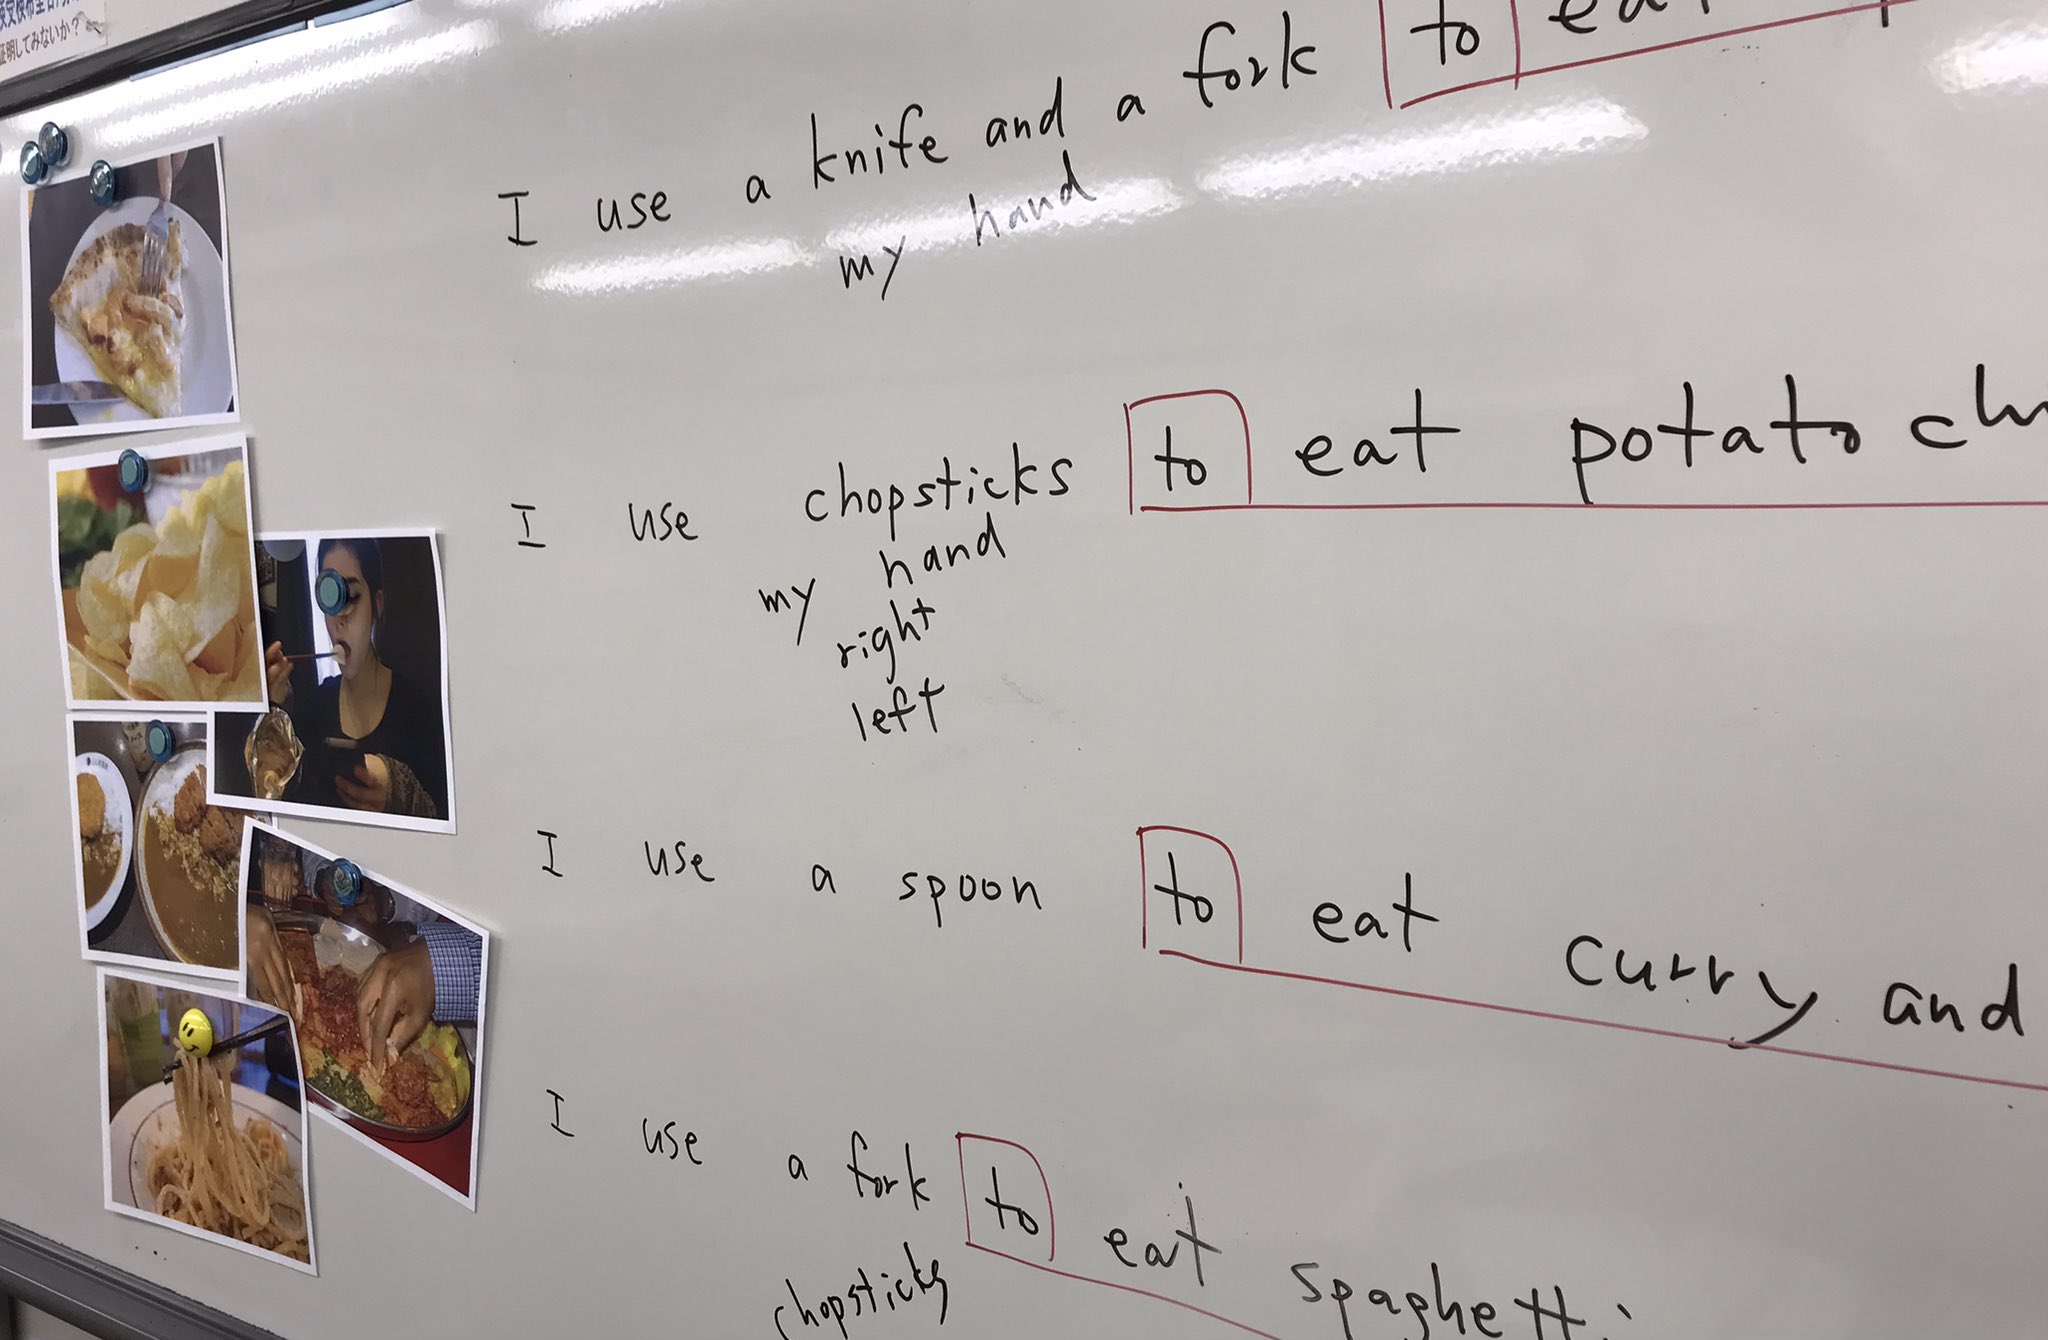 証明してみないか？
I use a knife and a fork to eat
my hand
I use chopsticks to eat potato
my hand
right
left
I use a spoon to eat curry and
I use a fork to eat spaghetti.
chopsticks